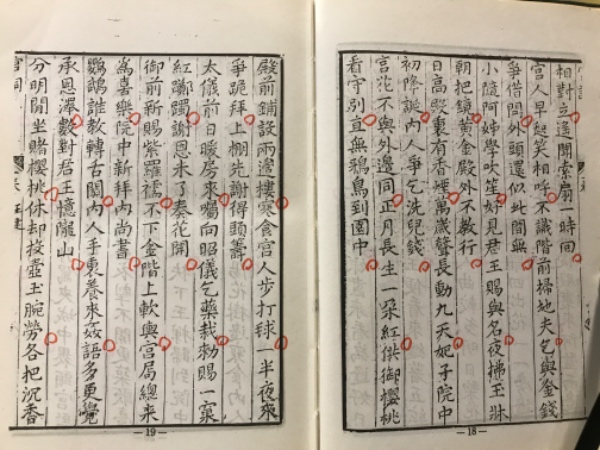 相對立遙聞索扇一時開
宮人早起笑相呼不識階前掃地夫乞與金錢
爭借問外頭還似此間無
小隨阿姊學吹笙好見君王賜與名夜拂玉牀
朝把鏡黃金殿外不教行
日高殿裏有香煙萬歲聲長動九天妃子院中
初降誕內人爭乞洗兒錢
宮花不與外邊同正月長生一朶紅供御櫻桃
看守別直無鴉鳥到園中
—18—
殿前鋪設兩邊樓寒食宮人步打毬一半來
爭跪拜上棚先謝得頭籌
太儀前日暖房來囑向昭儀乞藥栽勑賜一窠
紅躑躅謝恩未了奏花開
御前新賜紫羅襦不下金階上軟輿宮局總來
為喜樂院中新拜內尚書
鸚鵡誰教轉舌關內人手裏養來姦語多更覺
承恩澤數對君王憶隴山
分明閑坐賭櫻桃休却投壺玉腕勞各把沉香
宮詞
王建
—19—